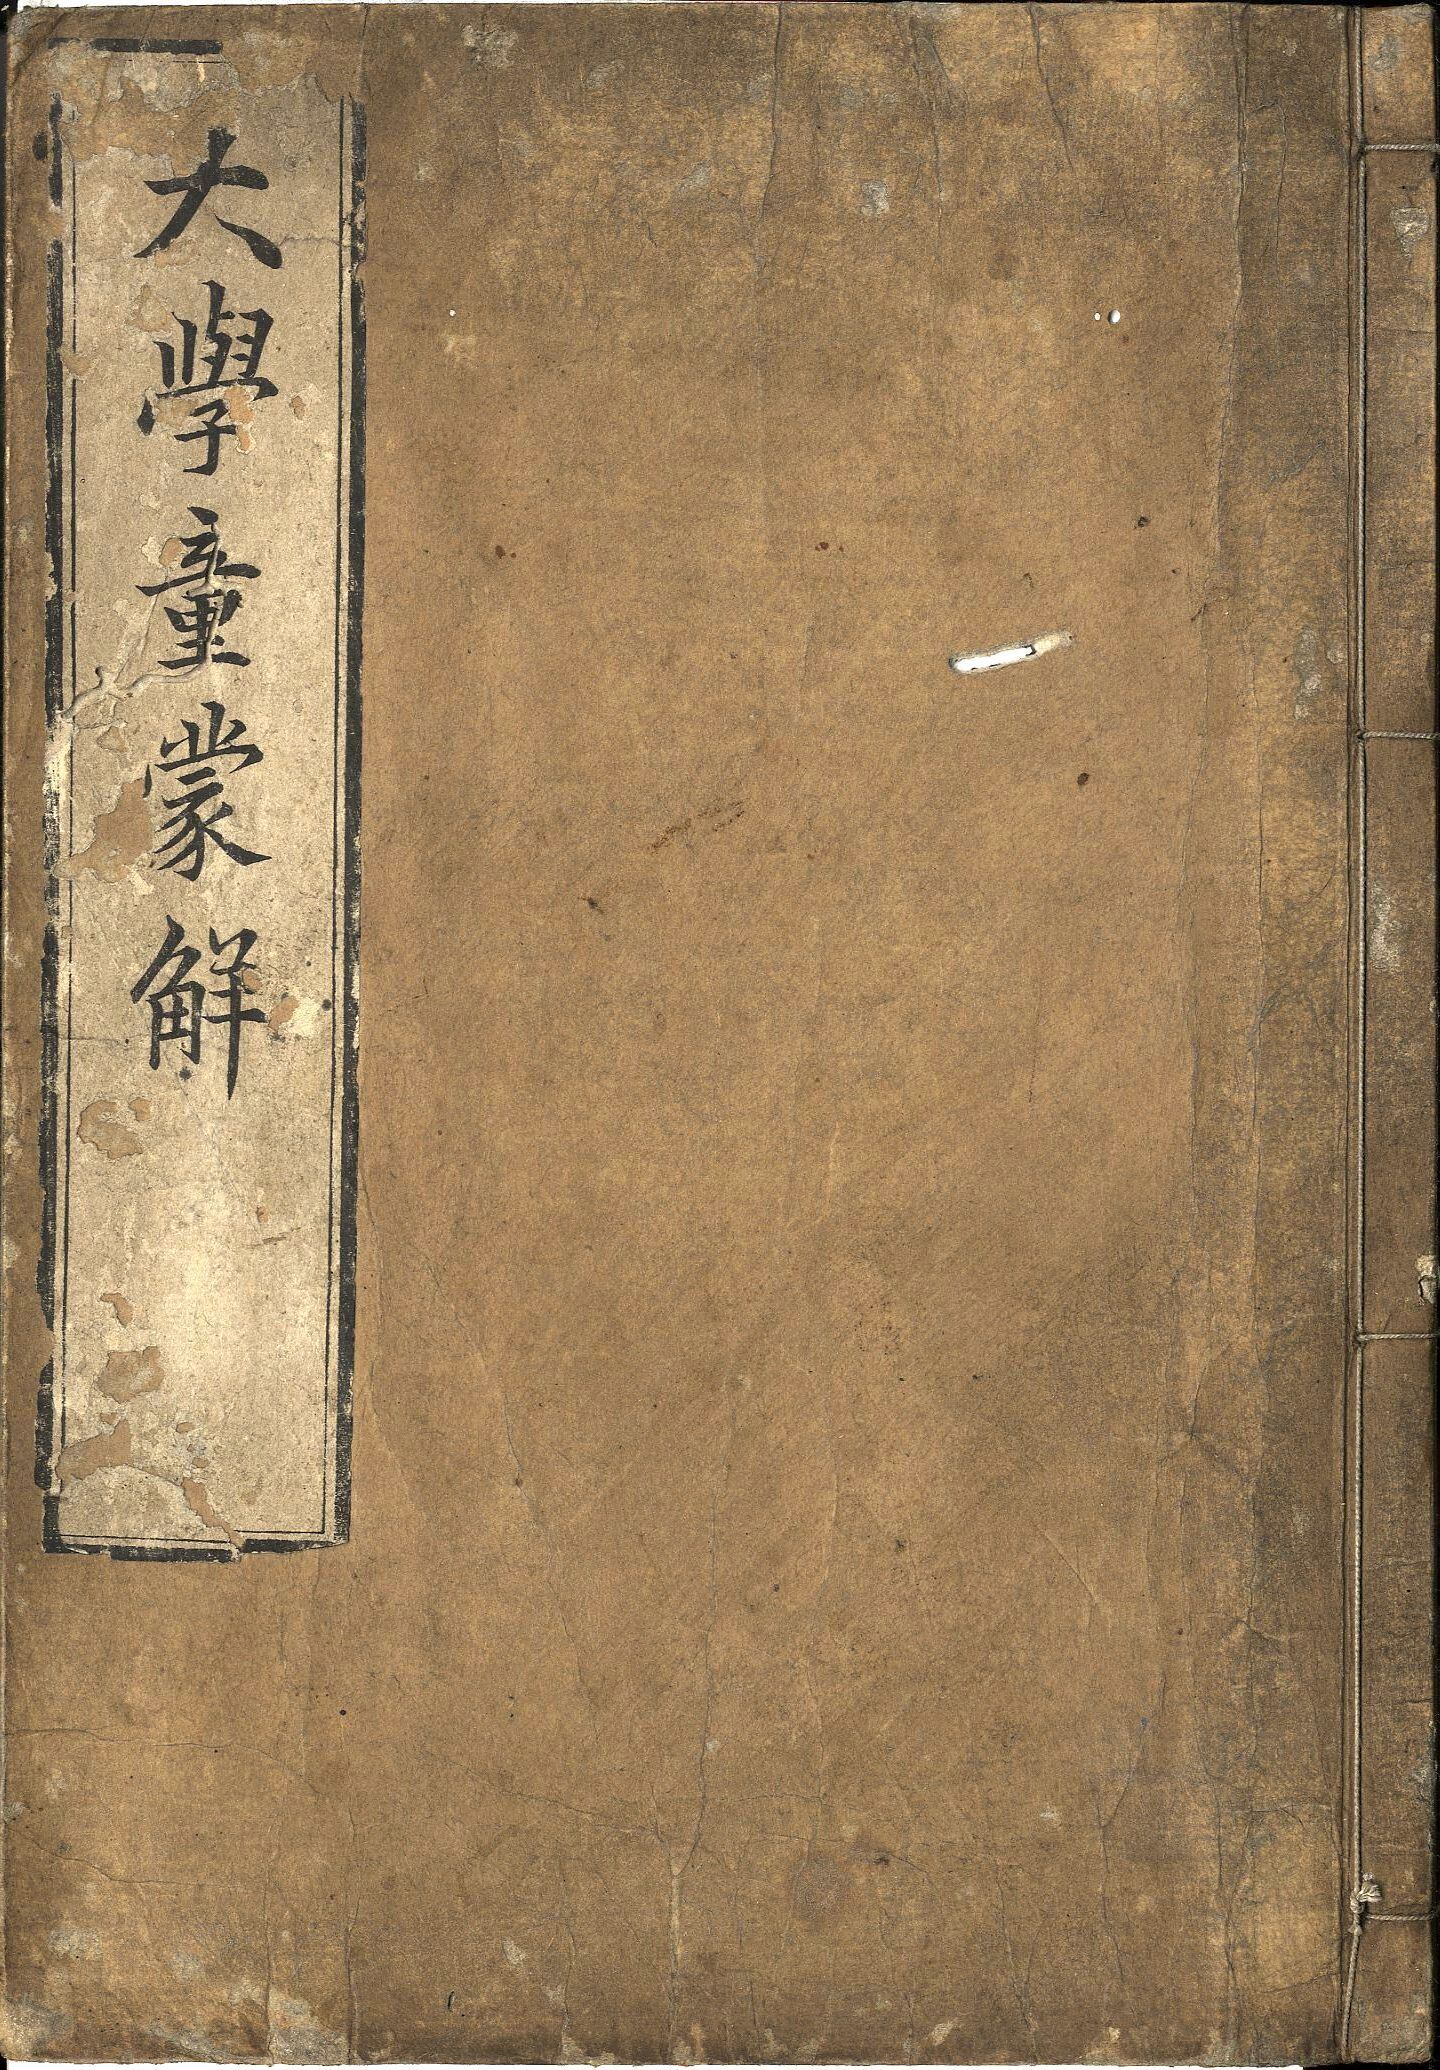 大學童蒙觧